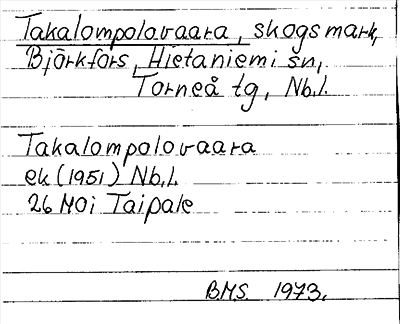 Takalompolovaara, skogsmark,
Björkfors, Hietaniemi sn,
Torneå tg, Nb.l.
Takalompolovaara
ek (1951) Nb.l.
26 M0i Taipale
B.M.S. 1973.